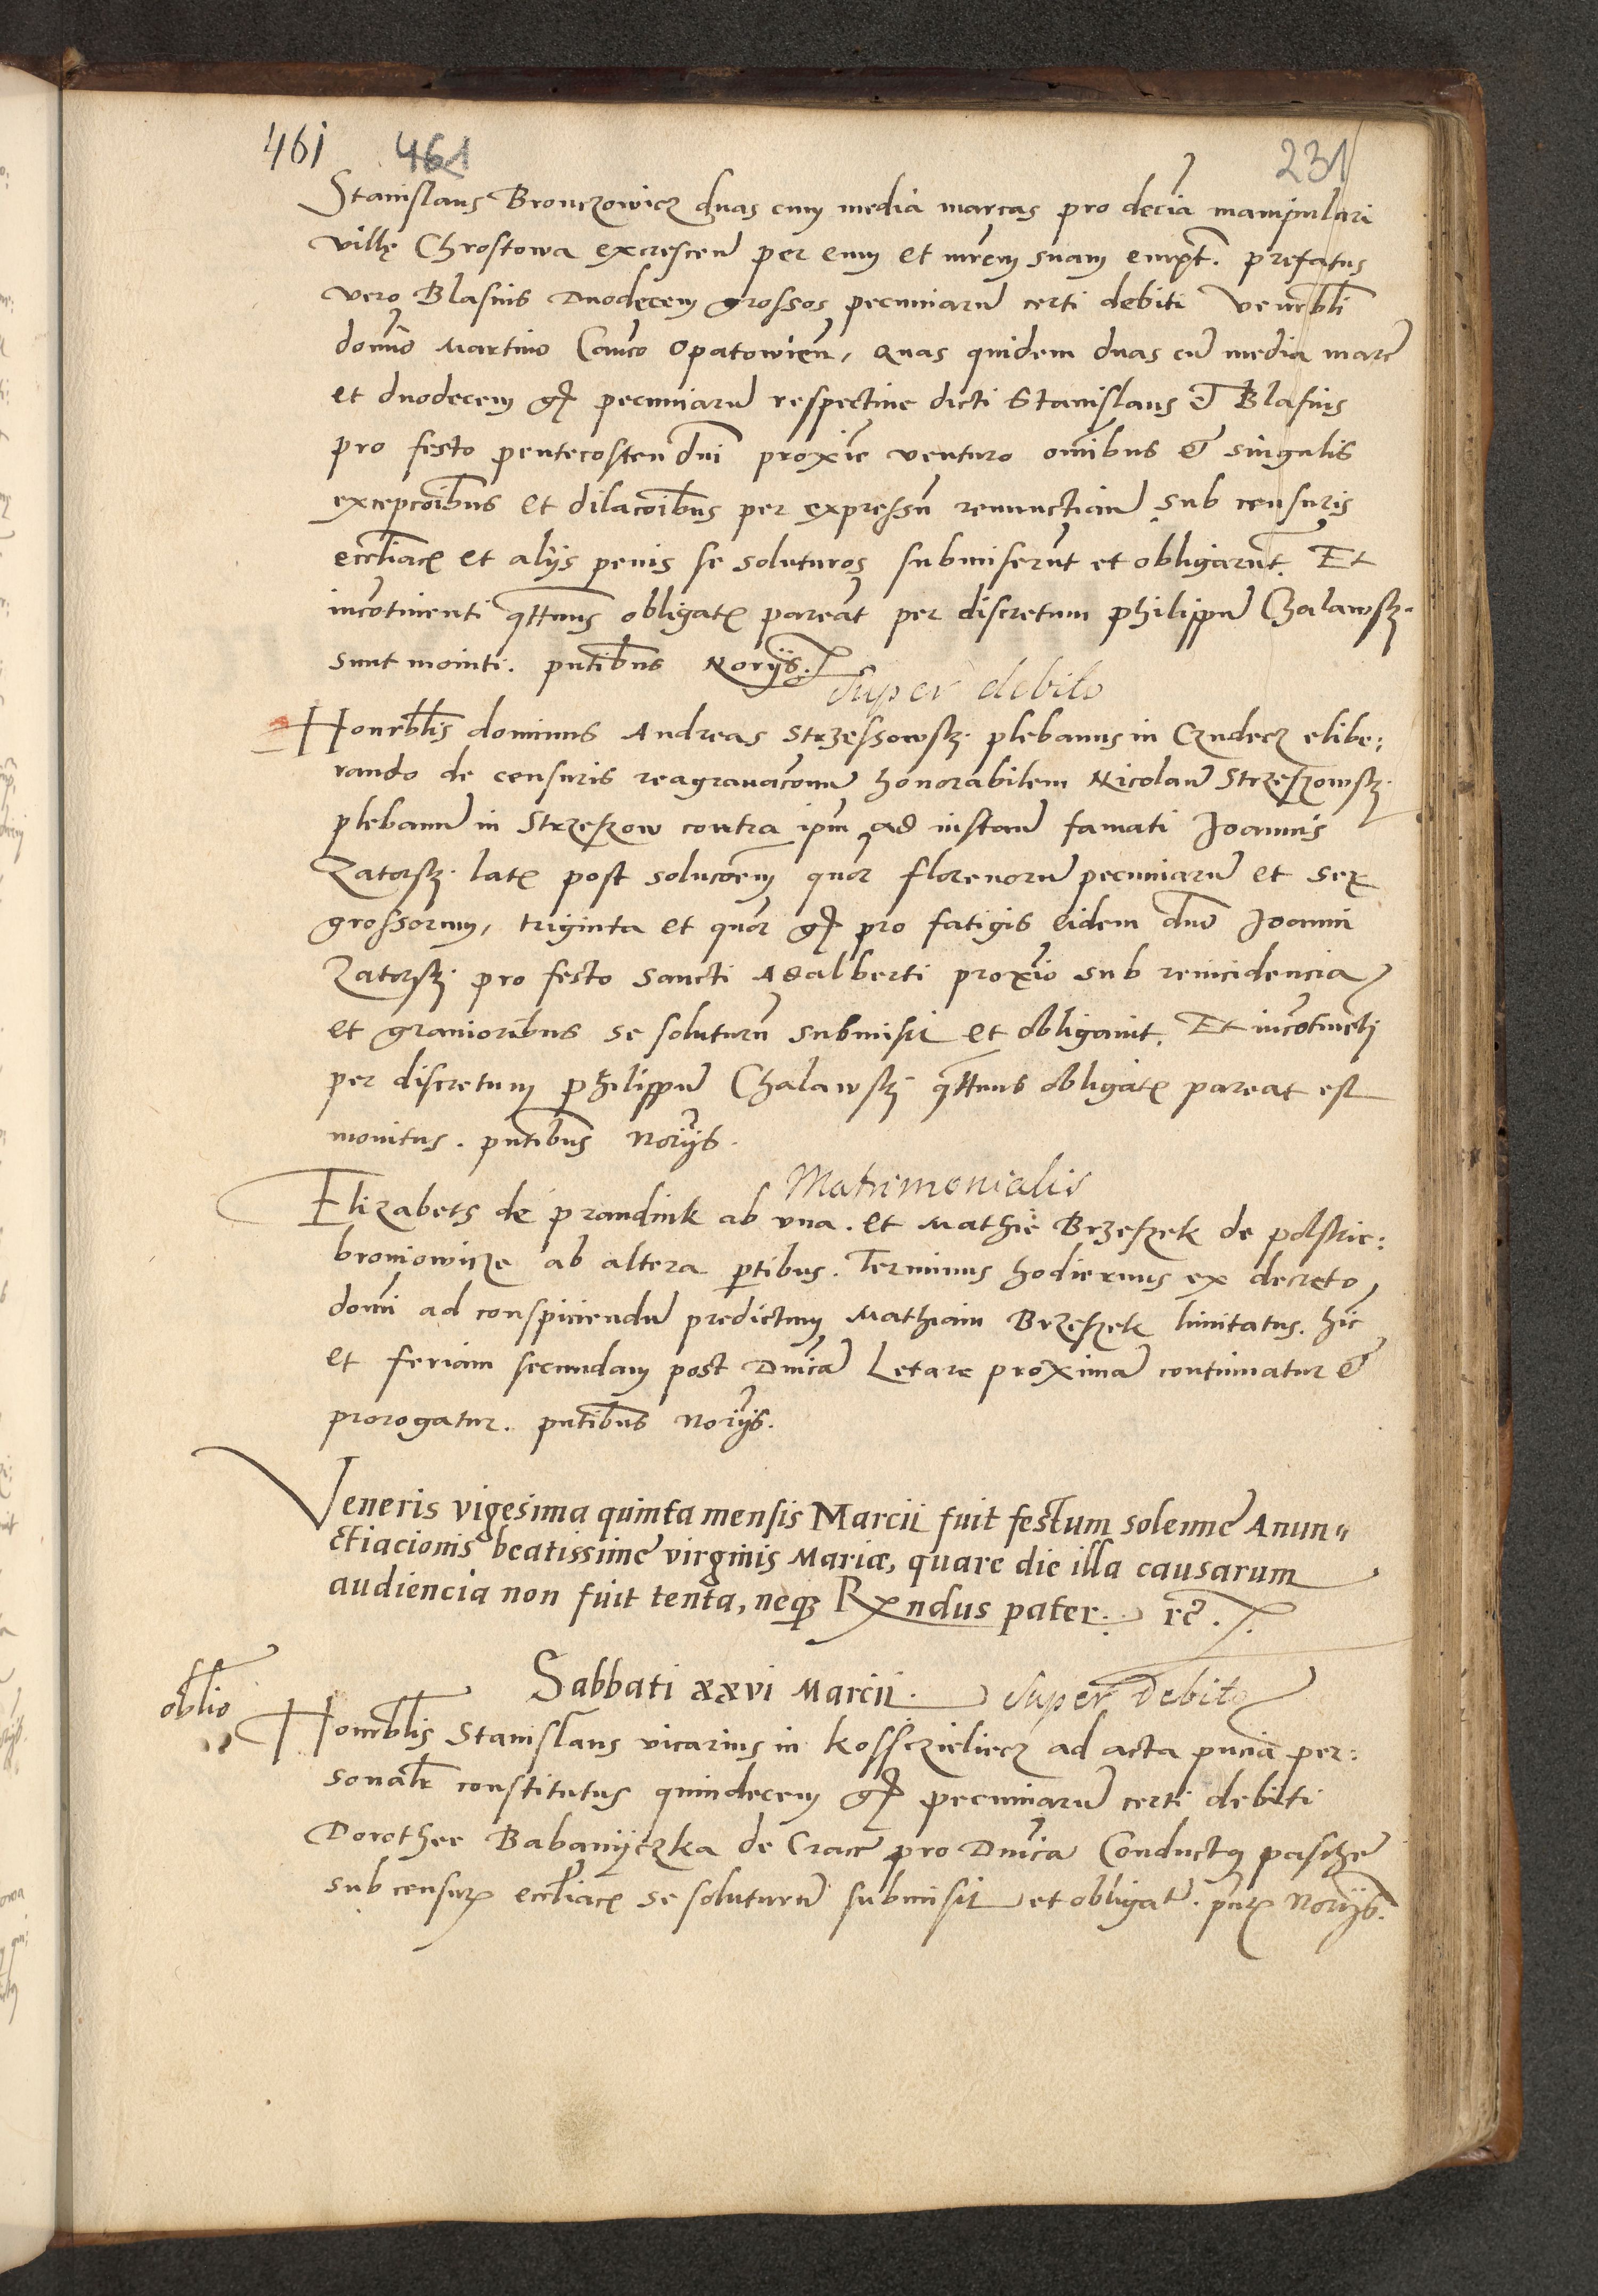 461 461 231
Stanislaus Bronczowicz duas cum media marcas pro decīa manipulari
villę Chrostowa excrescen̄ per eum et mrem suam empt. prefatus
vero Blasius Duodecem grossos pecuniarū certi debiti Venrbli
domīo Martino Canco Opatowien̄, Quas quidem duas cū media marc̄
et duodecem gr pecuniarū respective dicti Stanislaus et Blasius
pro festo pentecosten dni proxīe venturo omībus et singulis
excepcoībus et dilacoībus per expressū renunctian̄ sub censuris
eccliaς et alijs penis se soluturos submiserūt et obligarūt. Et
incōtinenti qttenus obligatς pareāt per discretum philippū Chalawsky
sunt moniti. pntibus Norijs.
Super debito
Honrblis dominus Andreas Strzessowsky plebanus in Czudecz elibe:
rando de censuris reagravaconū honorabilem Nicolaū Strzeszowsky
plebanū in Strzeszow contra ipm ad instan̄ famati Joannis
Zatorsky latς post solucoēm quor florenorū pecuniarū et sex
grossorum, triginta et quor gr pro fatigis eidem dno Joanni
Zatorsky pro festo sancti Adalberti proxīo sub reincidencia
et gravioribus se soluturū submisit et obligavit. Et incōtinēti
per discretum philippū Chalawsky qttenus obligatς pareat est
monitus. pntibus Norijs.
Matrimonialis
Elizabets de prandnik ab una. et Mathie Brzeszek de polskie:
broniowicze ab altera ptibus. Terminus hodiernus ex decreto
domī ad conspiciendū predictum Mathiam Brzeszek limitatus. hic
et feriam secundam post Dnicā Letare proximā continuatur et
prorogatur. pntibus Norijs.
Veneris vigesima quinta mensis Marcii fuit festum solenne Anun
ctiacionis beatissime virginis Mariæ, quare die illa causarum
audiencia non fuit tenta, neqz Rxndus pater. rc.
Sabbati xxvi Marcii. Super Debito
oblio
Honrblis Stanislaus vicarius in Kossczieliecz ad acta pncia per:
sonalr constitutus quindecem gr pecuniarū certi debiti
Dorothee Babanijczka de Crac̄ pro Dnica Conductus pasche
sub censurς eccliaς se soluturū submisit et obligat. pntς Norijs.